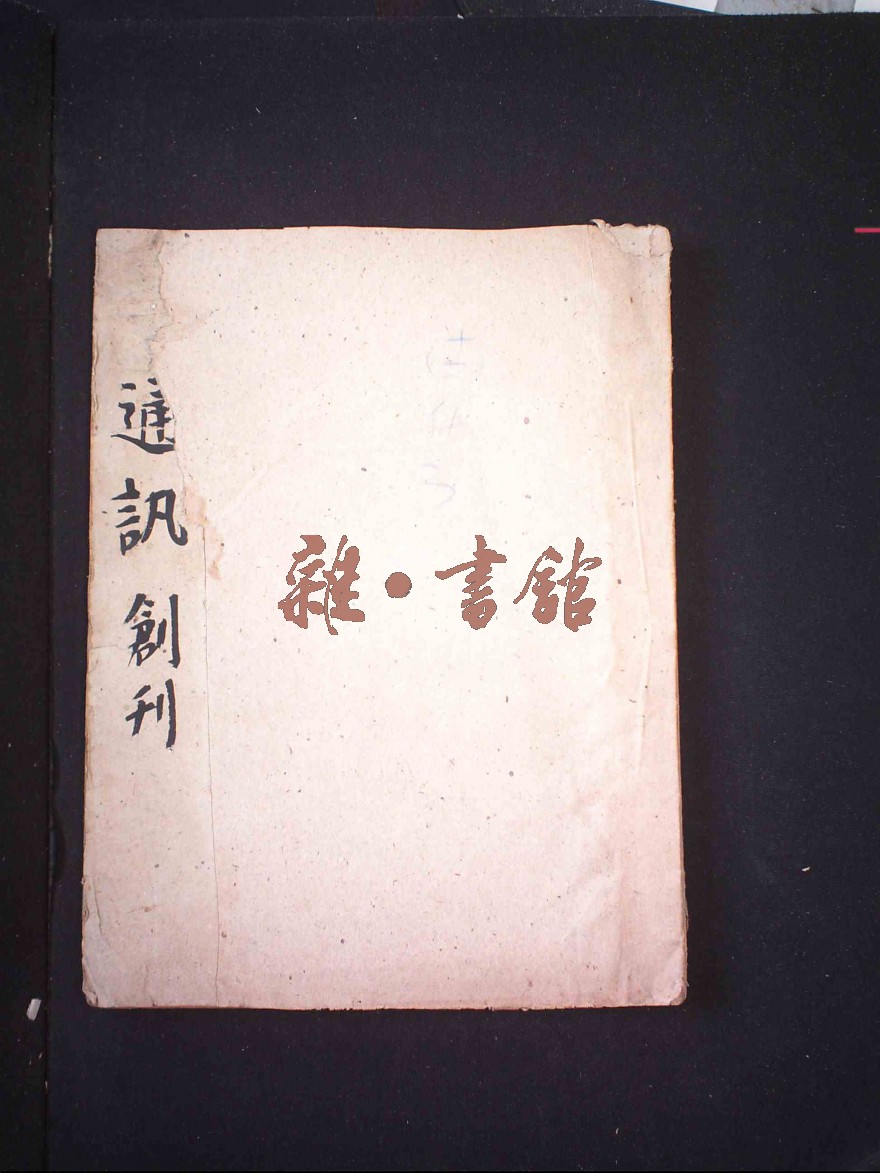 通訊創刊
雜·書館